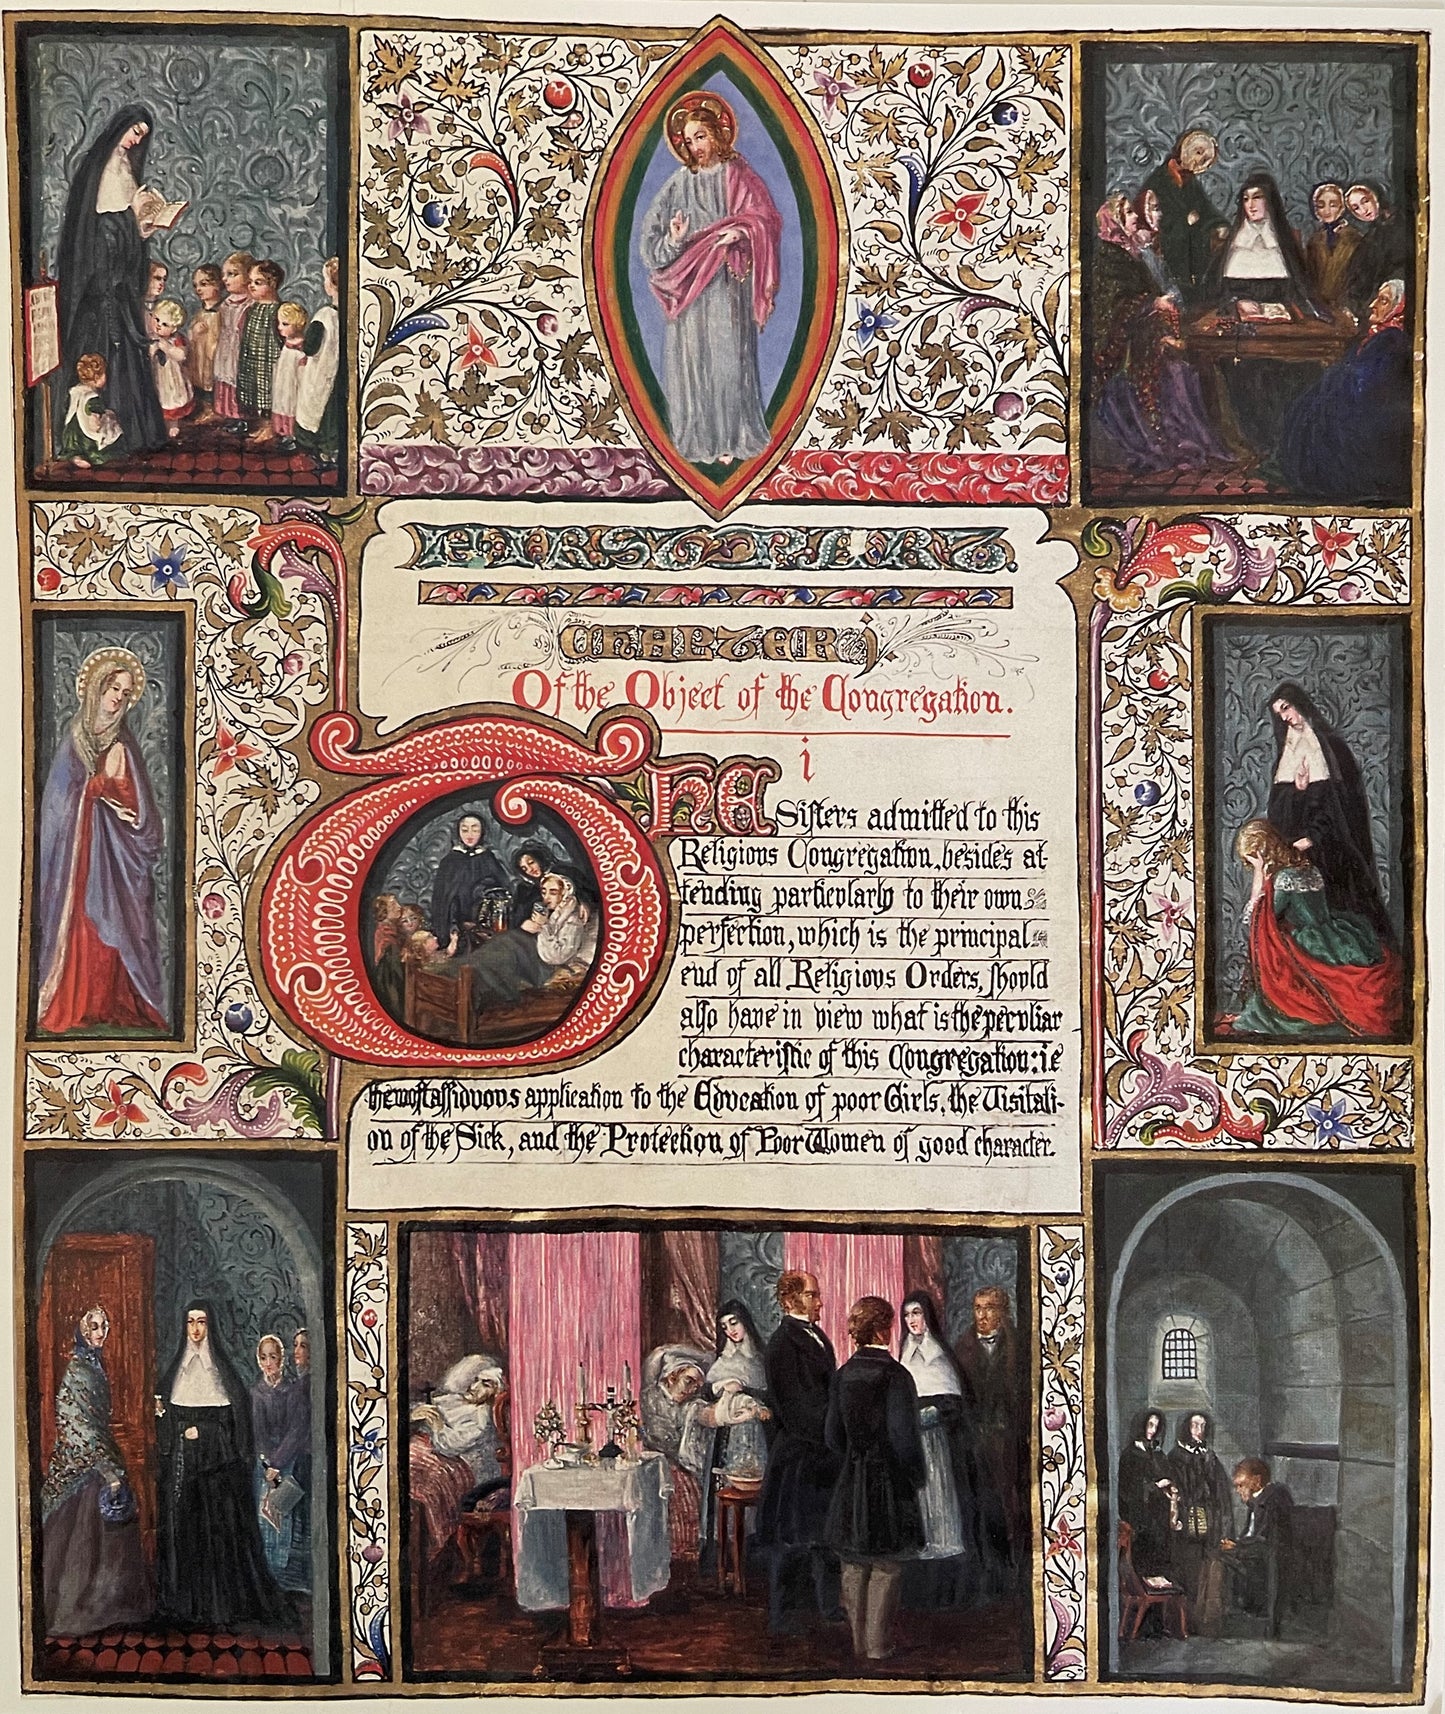 FIRST PART.
CHAPTER i.
Of the Object of the Congregation.
i
THE Sisters admitted to this
Religious Congregation, besides at-
tending particularly to their own
perfection, which is the principal
end of all Religious Orders, should
also have in view what is the peculiar
characteristic of this Congregation: ie
the most assiduous application to the Education of poor Girls, the Visitati-
on of the Sick, and the Protection of Poor Women of good character.